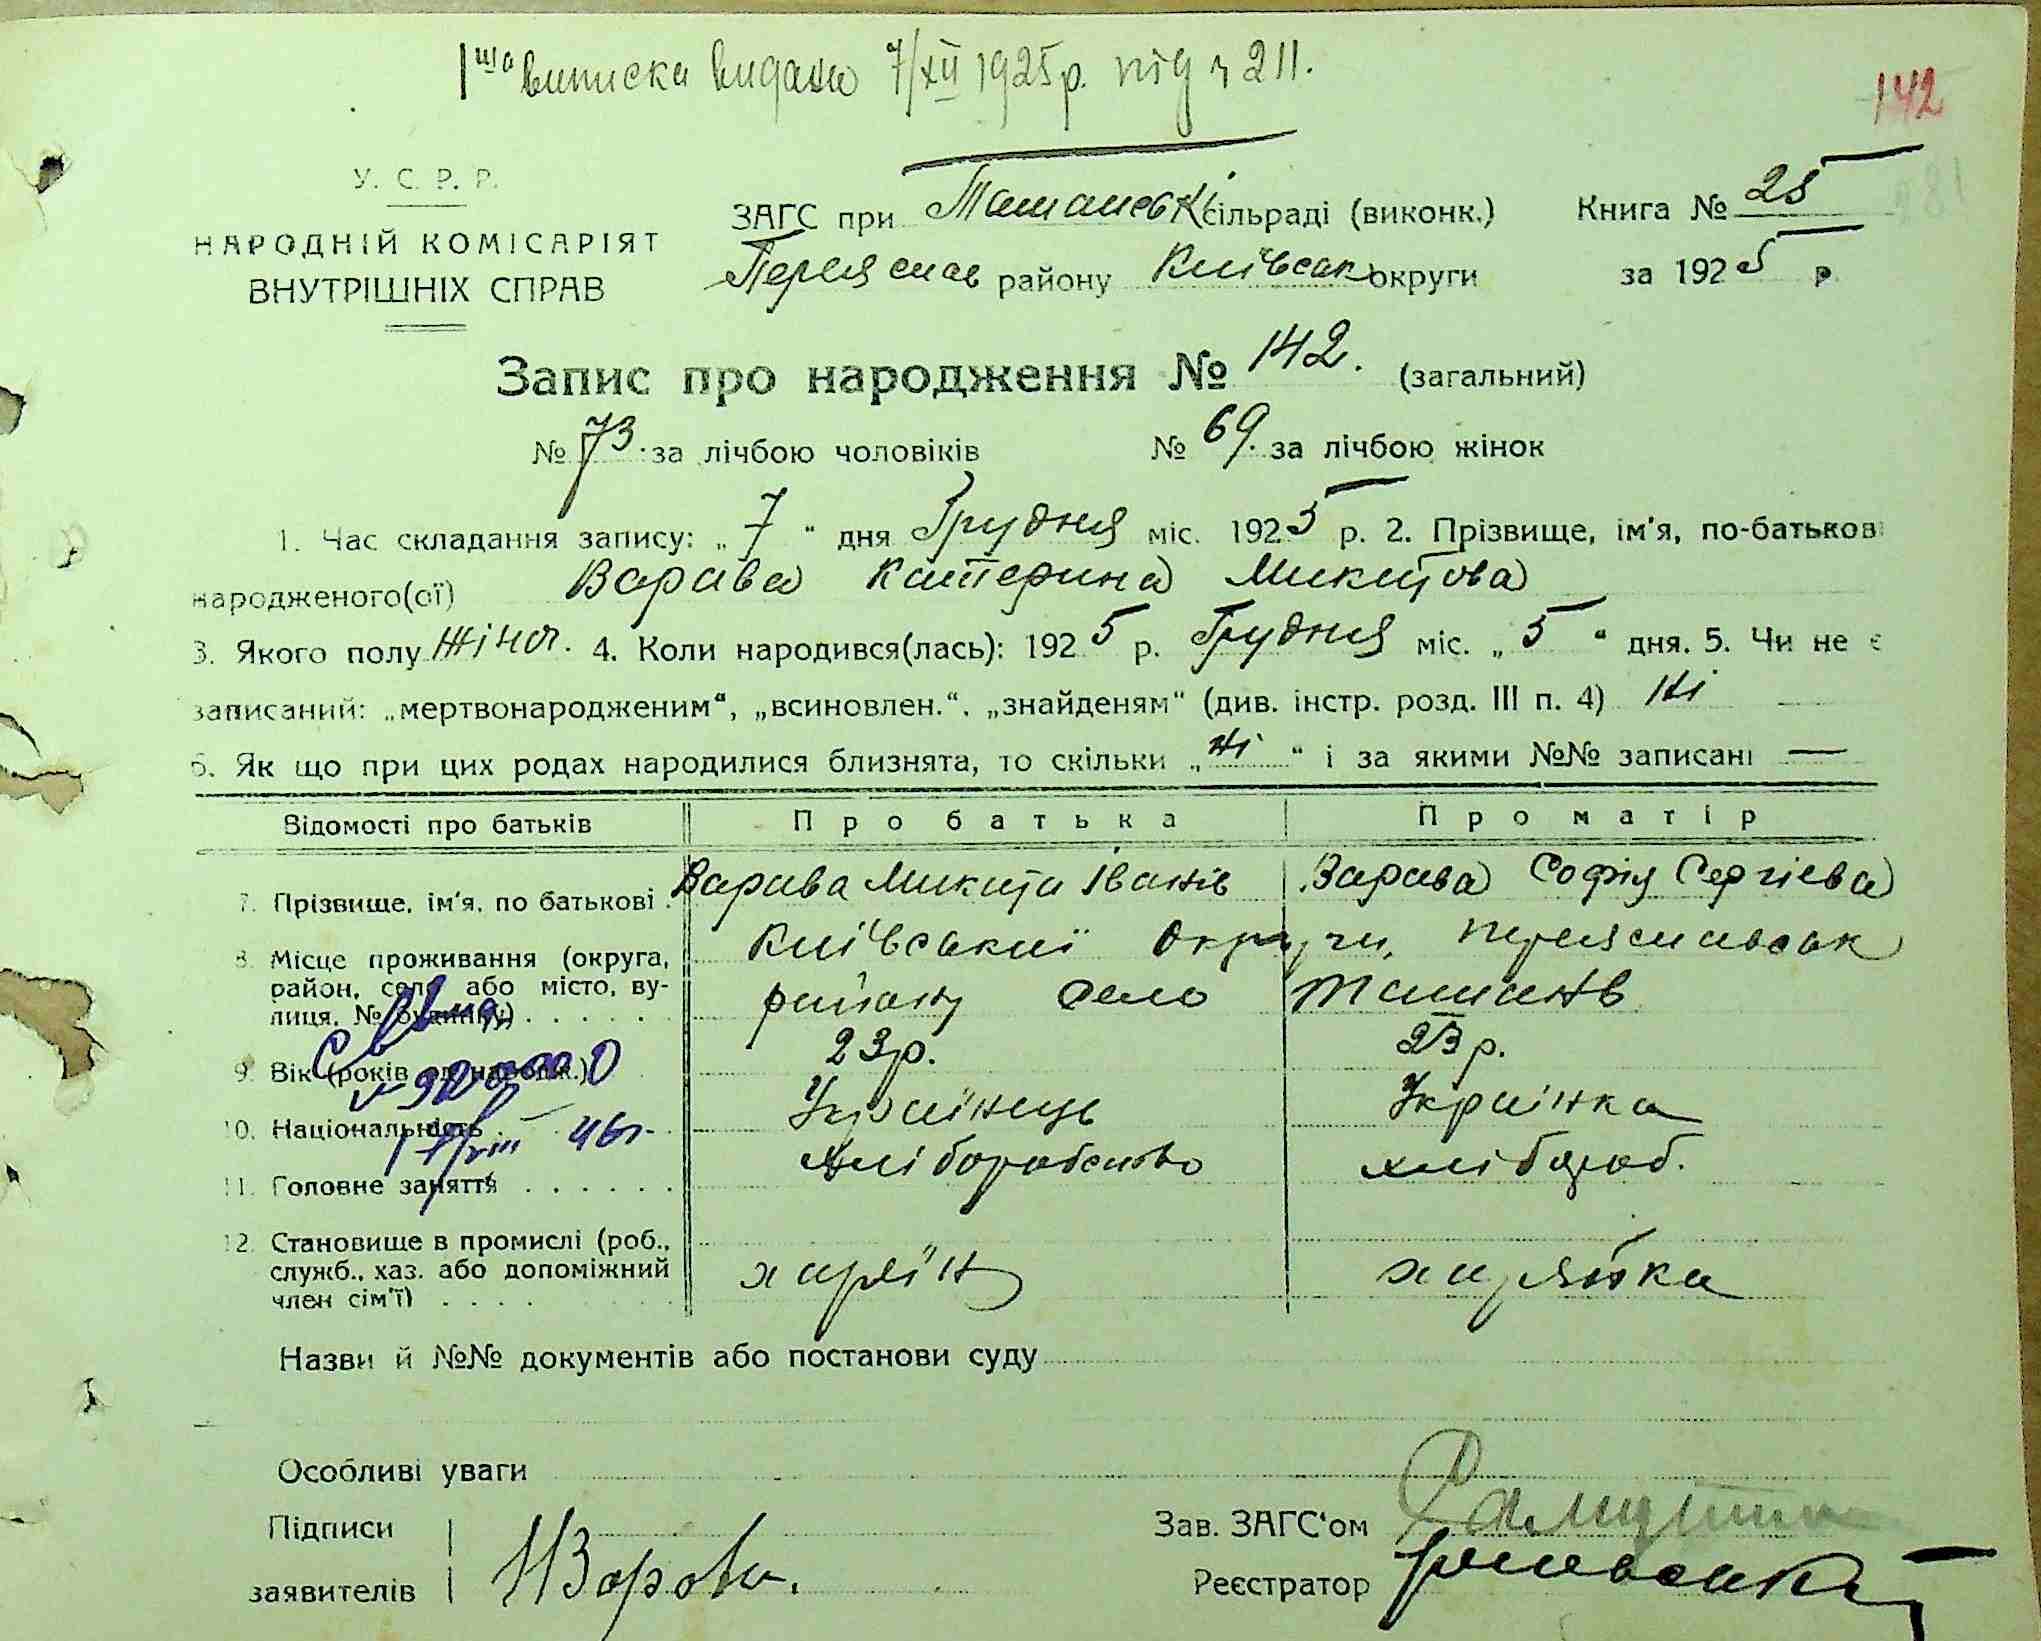 1ша виписка видана 7/XII 1925р. під ч 211.
142
У. С. Р. Р.
НАРОДНІЙ КОМІСАРІЯТ
ВНУТРІШНІХ СПРАВ
ЗАГС при Ташанські сільраді (виконк.) Книга № 25
Переяслав району Київськ округи за 1925 р.
Запис про народження № 142. (загальний)
№ 73. за лічбою чоловіків № 69. за лічбою жінок
1. Час складання запису: „ 7 “ дня Грудня міс. 1925 р. 2. Прізвище, ім'я, по-батьков
народженого(ої) Варава Катерина Микитова
3. Якого полу жіноч. 4. Коли народився(лась): 1925 р. Грудня міс. „ 5 “ дня. 5. Чи не є
записаний: „мертвонародженим“, „всиновлен.“, „знайденям“ (див. інстр. розд. III п. 4) Ні —
6. Як що при цих родах народилися близнята, то скільки „ ні “ і за якими №№ записані —
Відомості про батьків Про батька Про матір
7. Прізвище, ім'я, по батькові . Варава Микита Іванів Варава Софія Сергієва
8. Місце проживання (округа, Київської Округи, Переяславськ
район, село або місто, ву- району село Ташань
лиця, № будинку) . . . . . .
9. Вік (років від народж.) 23р. 23р.
10. Національність . Українець Українка
11. Головне заняття . . . . . . Хліборобство хлібороб.
12. Становище в промислі (роб.,
служб., хаз. або допоміжний хазяїн хазяйка
член сім'ї) . . . .
46г.
Назви й №№ документів або постанови суду
Особливі уваги
Підписи Зав. ЗАГС'ом
заявителів НВарава. Реєстратор